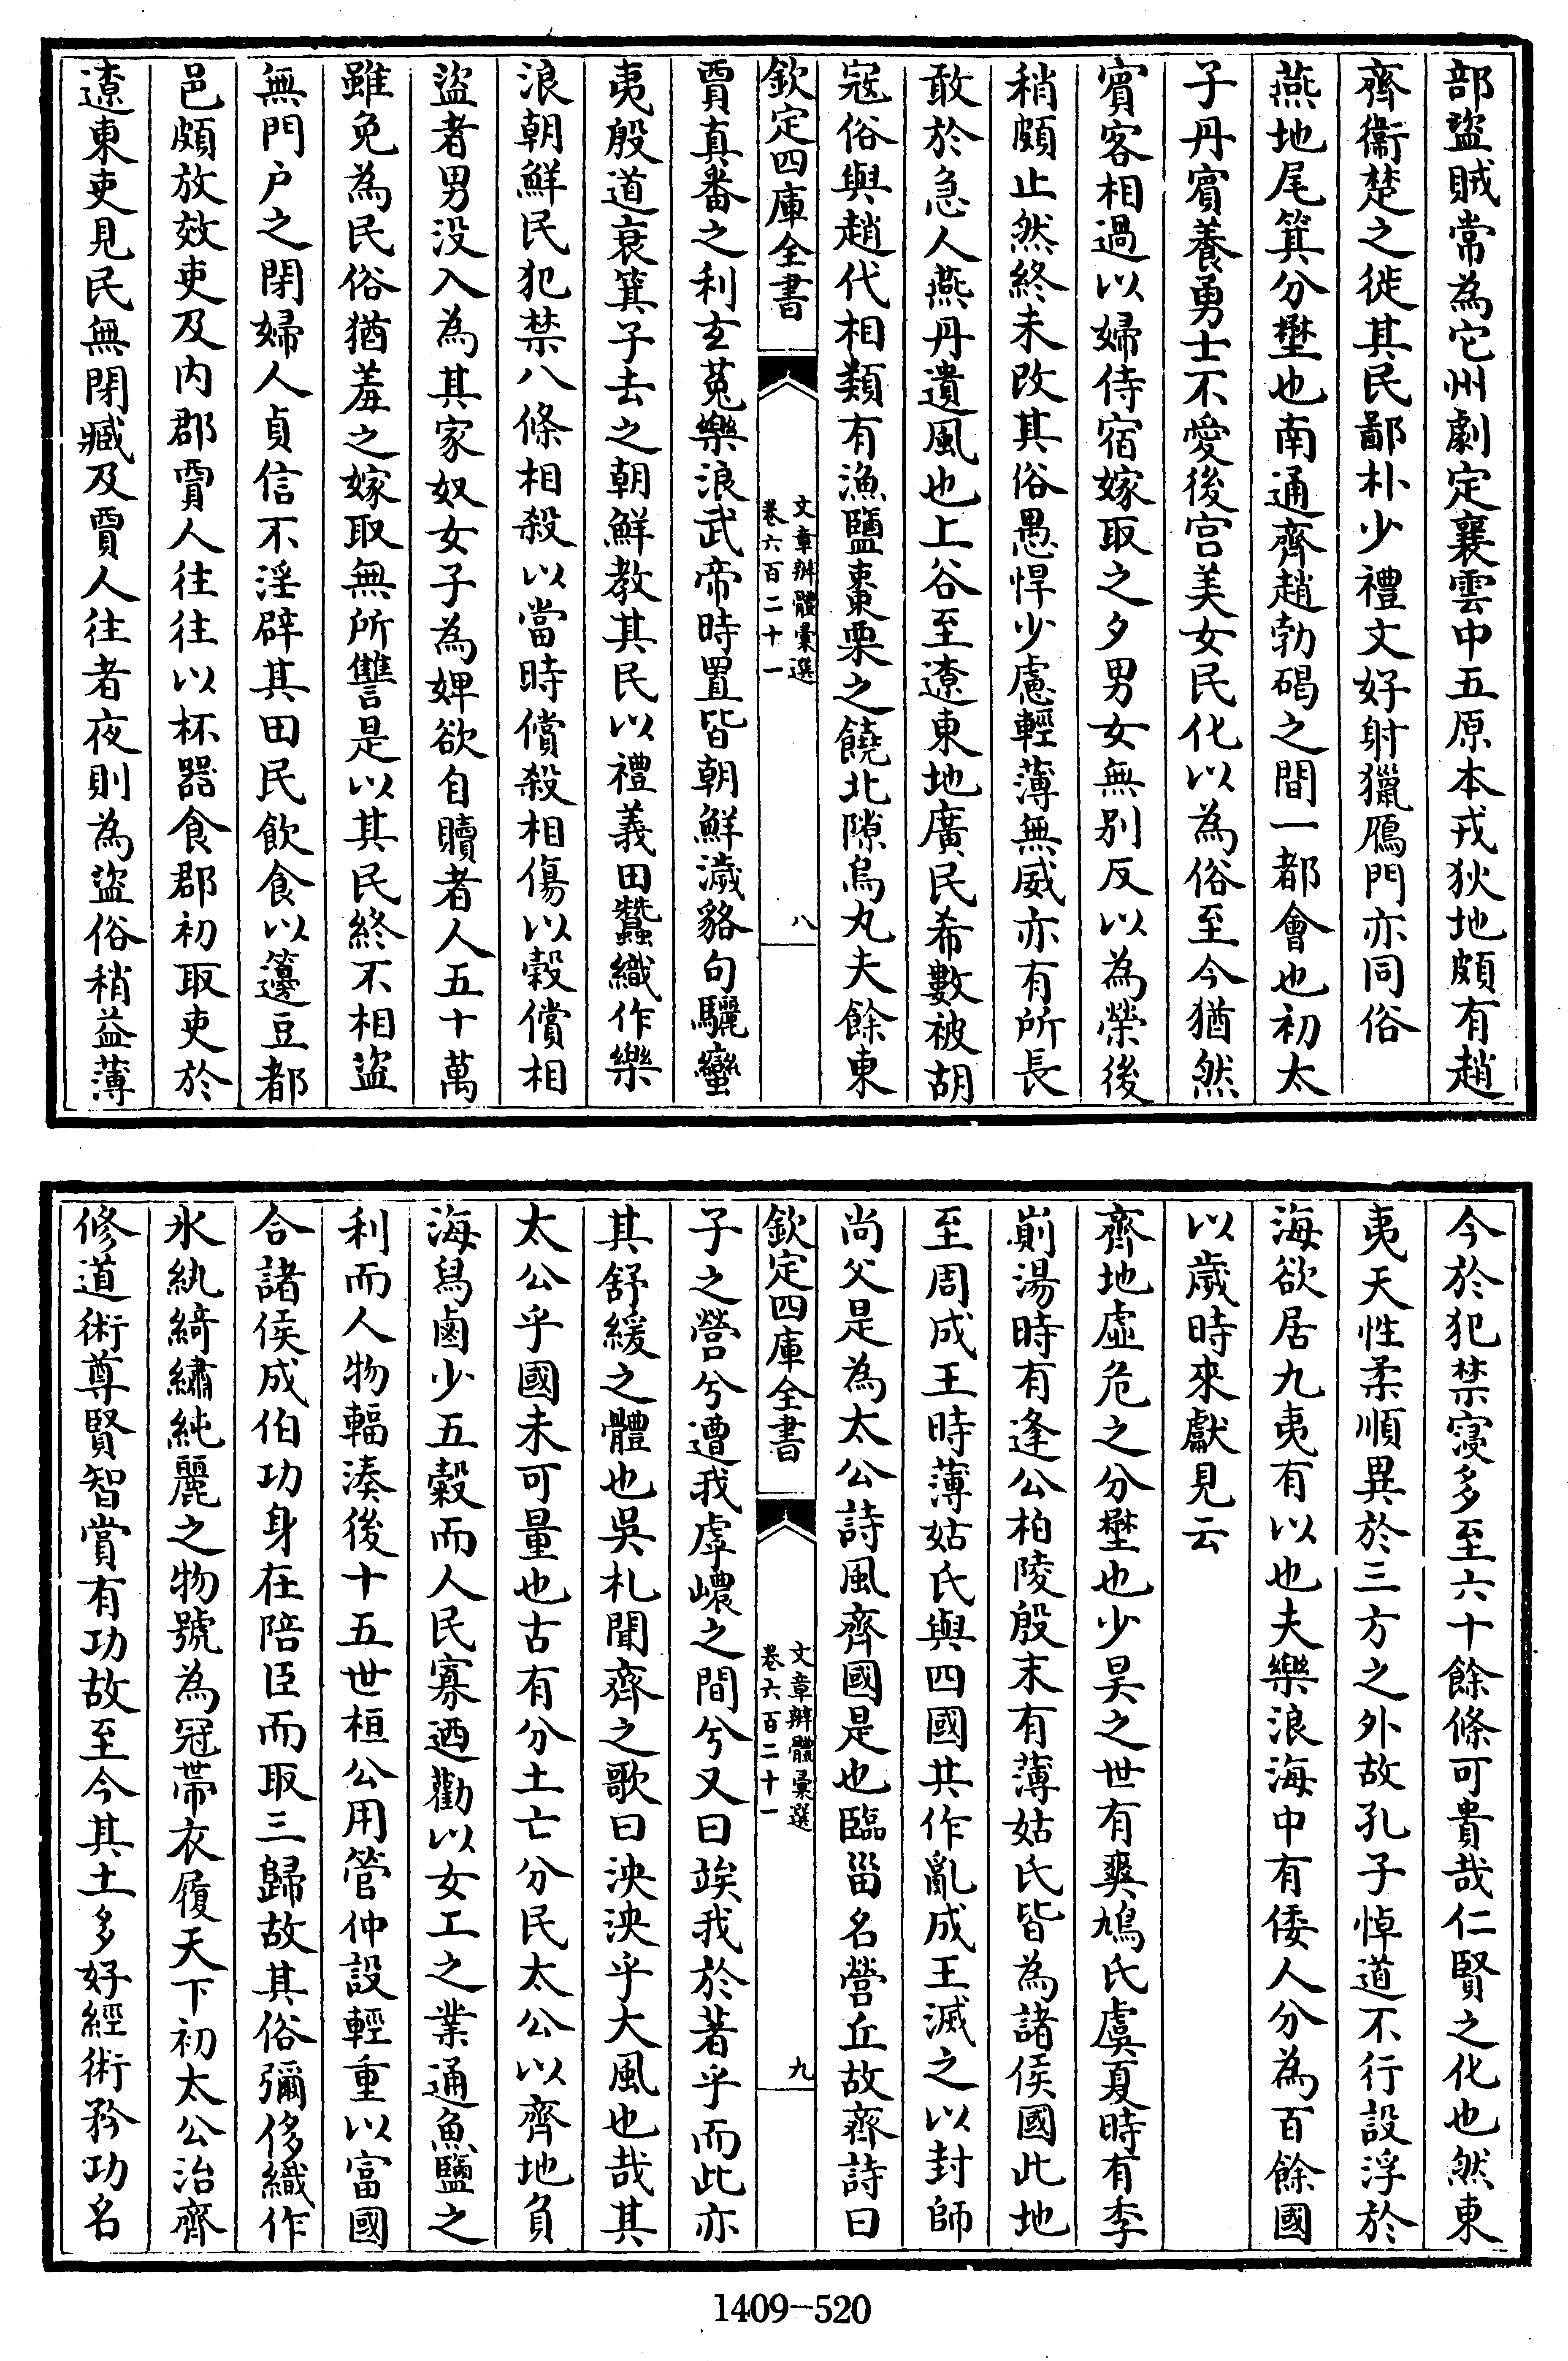 部盜賊常為它州劇定襄雲中五原本戎狄地頗有趙
齊衞楚之徙其民鄙朴少禮文好射獵鴈門亦同俗
燕地尾箕分壄也南通齊趙勃碣之間一都會也初太
子丹賓養勇士不愛後宮美女民化以為俗至今猶然
賓客相過以婦侍宿嫁取之夕男女無別反以為榮後
稍頗止然終未改其俗愚悍少慮輕薄無威亦有所長
敢於急人燕丹遺風也上谷至遼東地廣民希數被胡
冦俗與趙代相類有漁鹽棗栗之饒北隙烏丸夫餘東
欽定四庫全書
文章辨體彙選
卷六百二十一
八
賈真番之利玄菟樂浪武帝時置皆朝鮮濊貉句驪蠻
夷殷道衰箕子去之朝鮮教其民以禮義田蠶織作樂
浪朝鮮民犯禁八條相殺以當時償殺相傷以穀償相
盜者男没入為其家奴女子為婢欲自贖者人五十萬
雖免為民俗猶羞之嫁取無所讐是以其民終不相盜
無門户之閉婦人貞信不淫辟其田民飲食以籩豆都
邑頗放效吏及内郡賈人往往以杯器食郡初取吏於
遼東吏見民無閉臧及賈人往者夜則為盜俗稍益薄
今於犯禁寖多至六十餘條可貴哉仁賢之化也然東
夷天性柔順異於三方之外故孔子悼道不行設浮於
海欲居九夷有以也夫樂浪海中有倭人分為百餘國
以歲時來獻見云
齊地虛危之分壄也少昊之世有爽鳩氏虞夏時有季
崱湯時有逢公柏陵殷末有薄姑氏皆為諸侯國此地
至周成王時薄姑氏與四國共作亂成王滅之以封師
尚父是為太公詩風齊國是也臨甾名營丘故齊詩曰
欽定四庫全書
文章辨體彙選
卷六百二十一
九
子之營兮遭我虖嶩之間兮又曰竢我於著乎而此亦
其舒緩之體也吳札聞齊之歌曰泱泱乎大風也哉其
太公乎國未可量也古有分土亡分民太公以齊地負
海舄鹵少五穀而人民寡迺勸以女工之業通魚鹽之
利而人物輻湊後十五世桓公用管仲設輕重以富國
合諸侯成伯功身在陪臣而取三歸故其俗彌侈織作
氷紈綺繡純麗之物號為冠帶衣履天下初太公治齊
修道術尊賢智賞有功故至今其土多好經術矜功名
1409-520